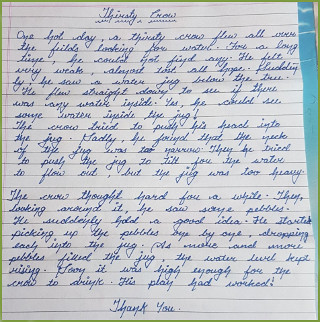 Thirsty Crow
One hot day, a thirsty crow flew all over
the feilds looking for water. For a long
time, he could not find any. He felt
very weak, almost lost all hope. Suddenly
by he saw a water jug below the tree.
He flew straight down to see if there
was any water inside. Yes, he could see
some water inside the jug!
The crow tried to push his head into
the jug. Sadly, he found that the neck
of the jug was too narrow. Then he tried
to push the jug to tilt for the water
to flow out, but the jug was too heavy.
The crow thought hard for a while. Then,
looking around it, he saw some pebbles.
He suddenly had a good idea. He started
picking up the pebbles one by one, dropping
each into the jug. As more and more
pebbles filled the jug, the water level kept
rising. Soon it was high enough for the
crow to drink. His plan had worked!
Thank You.